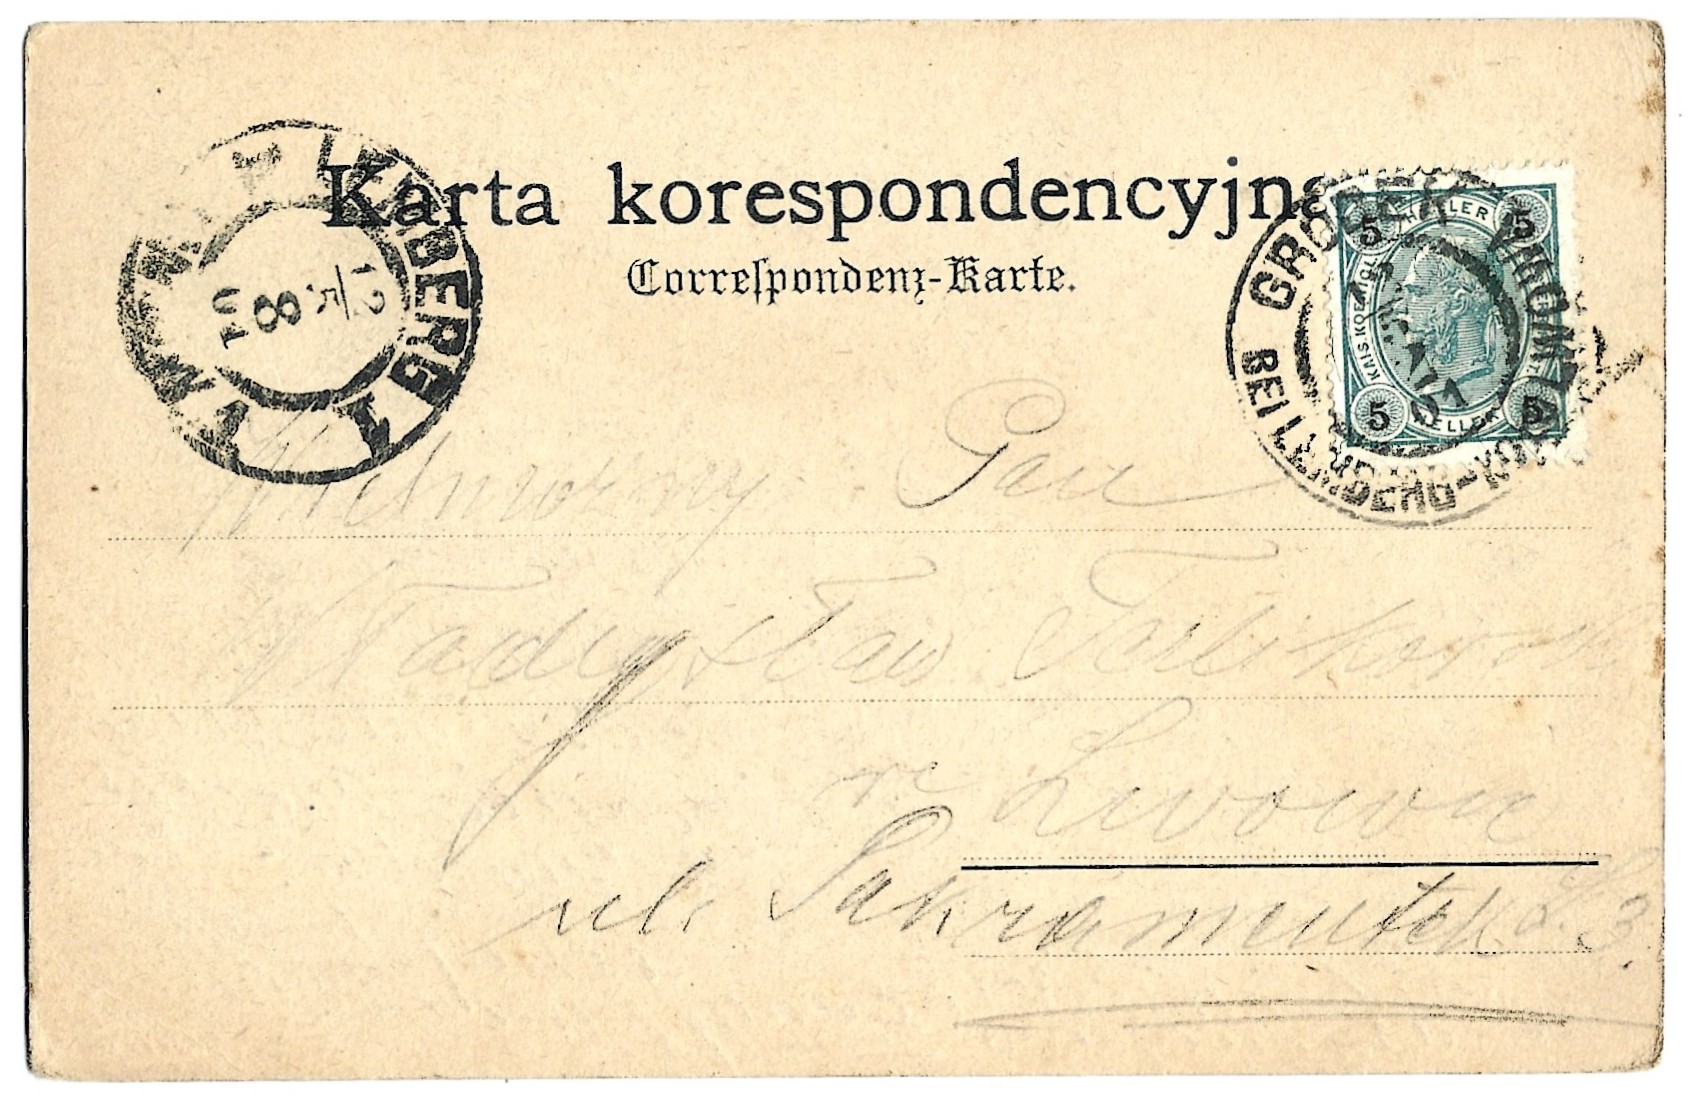 Karta korespondencyjna
Correspondenz-Karte.
LEMBERG 1
12/5
8
01
GRODEK
BEI LEMBERG
5 HELLER 5
5 HELLER 5
Wielmożny Pan
Władysław
we Lwowie
ul. Sakramentek L. 3.